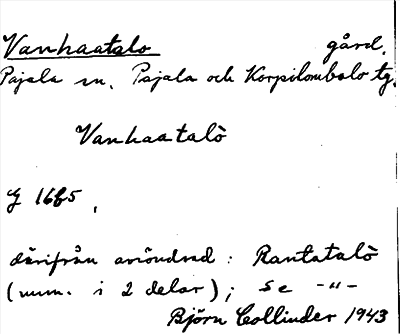 Vanhaatalo gård.
Pajala sn. Pajala och Korpilombolo tg.
Vanhaatalò
därifrån avsöndrad : Rantatalò
(num. i 2 delar); se -"-
Björn Collinder 1943